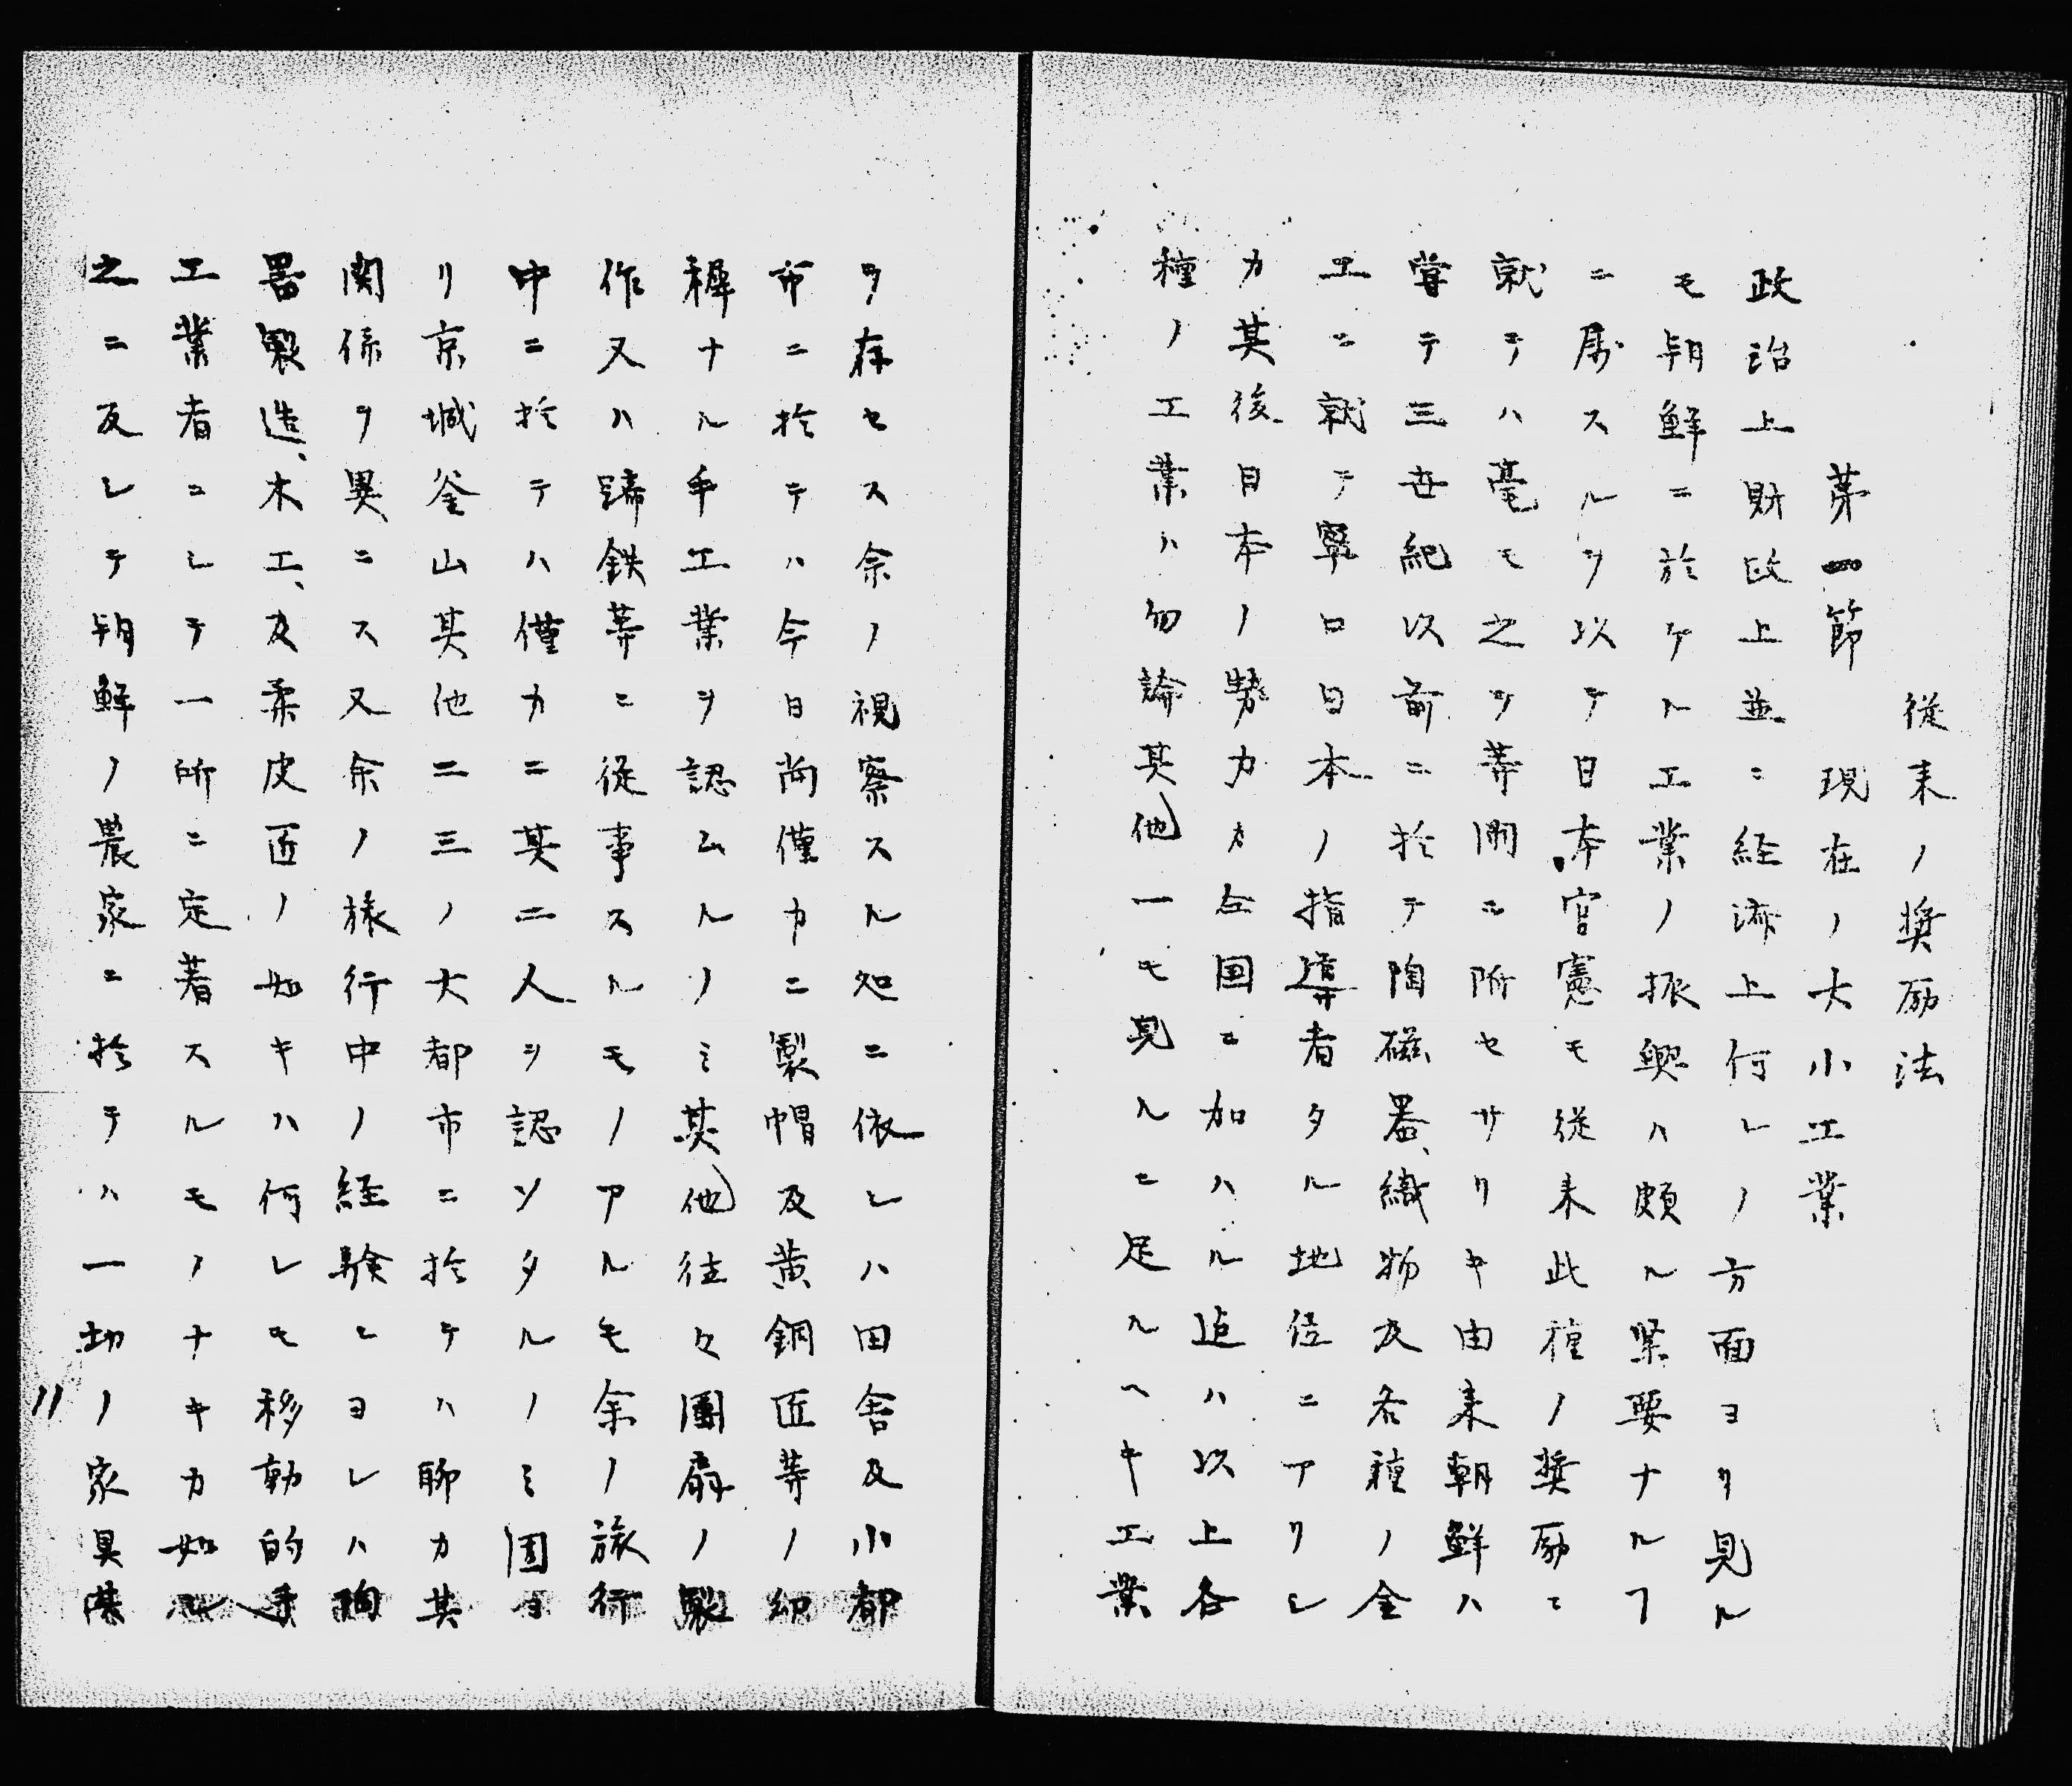 従来ノ奨励法
第一節　現在ノ大小工業
政治上財政上並ニ経済上何レノ方面ヨリ見ル
モ朝鮮ニ於ケル工業ノ振興ハ頗ル緊要ナルヿ
ニ属スルヲ以テ日本官憲モ従来此種ノ奨励ニ
就テハ毫モ之ヲ等閑ニ附セサリキ由来朝鮮ハ
嘗テ三世紀以前ニ於テ陶磁器、織物及各種ノ金
工ニ就テ寧ロ日本ノ指導者タル地位ニアリシ
カ其後日本ノ勢力カ全国ニ加ハル迄ハ以上各
種ノ工業ハ勿論其他一モ見ルニ足ルヘキ工業
ヲ存セス余ノ視察スル処ニ依レハ田舎及小都
市ニ於テハ今日尚僅カニ製帽及黄銅匠等ノ幼
穉ナル手工業ヲ認ムルノミ其他往々團扇ノ製
作又ハ蹄鉄等ニ従事スルモノアルモ余ノ旅行
中ニ於テハ僅カニ其二人ヲ認ソタルノミ固ヨ
リ京城釜山其他二三ノ大都市ニ於テハ聊カ其
関係ヲ異ニス又余ノ旅行中ノ経験ニヨレハ陶
器製造、木工、及柔皮匠ノ如キハ何レモ移動的手
工業者ニシテ一所ニ定着スルモノナキカ如シ
之ニ反シテ朝鮮ノ農家ニ於テハ一切ノ家具
11